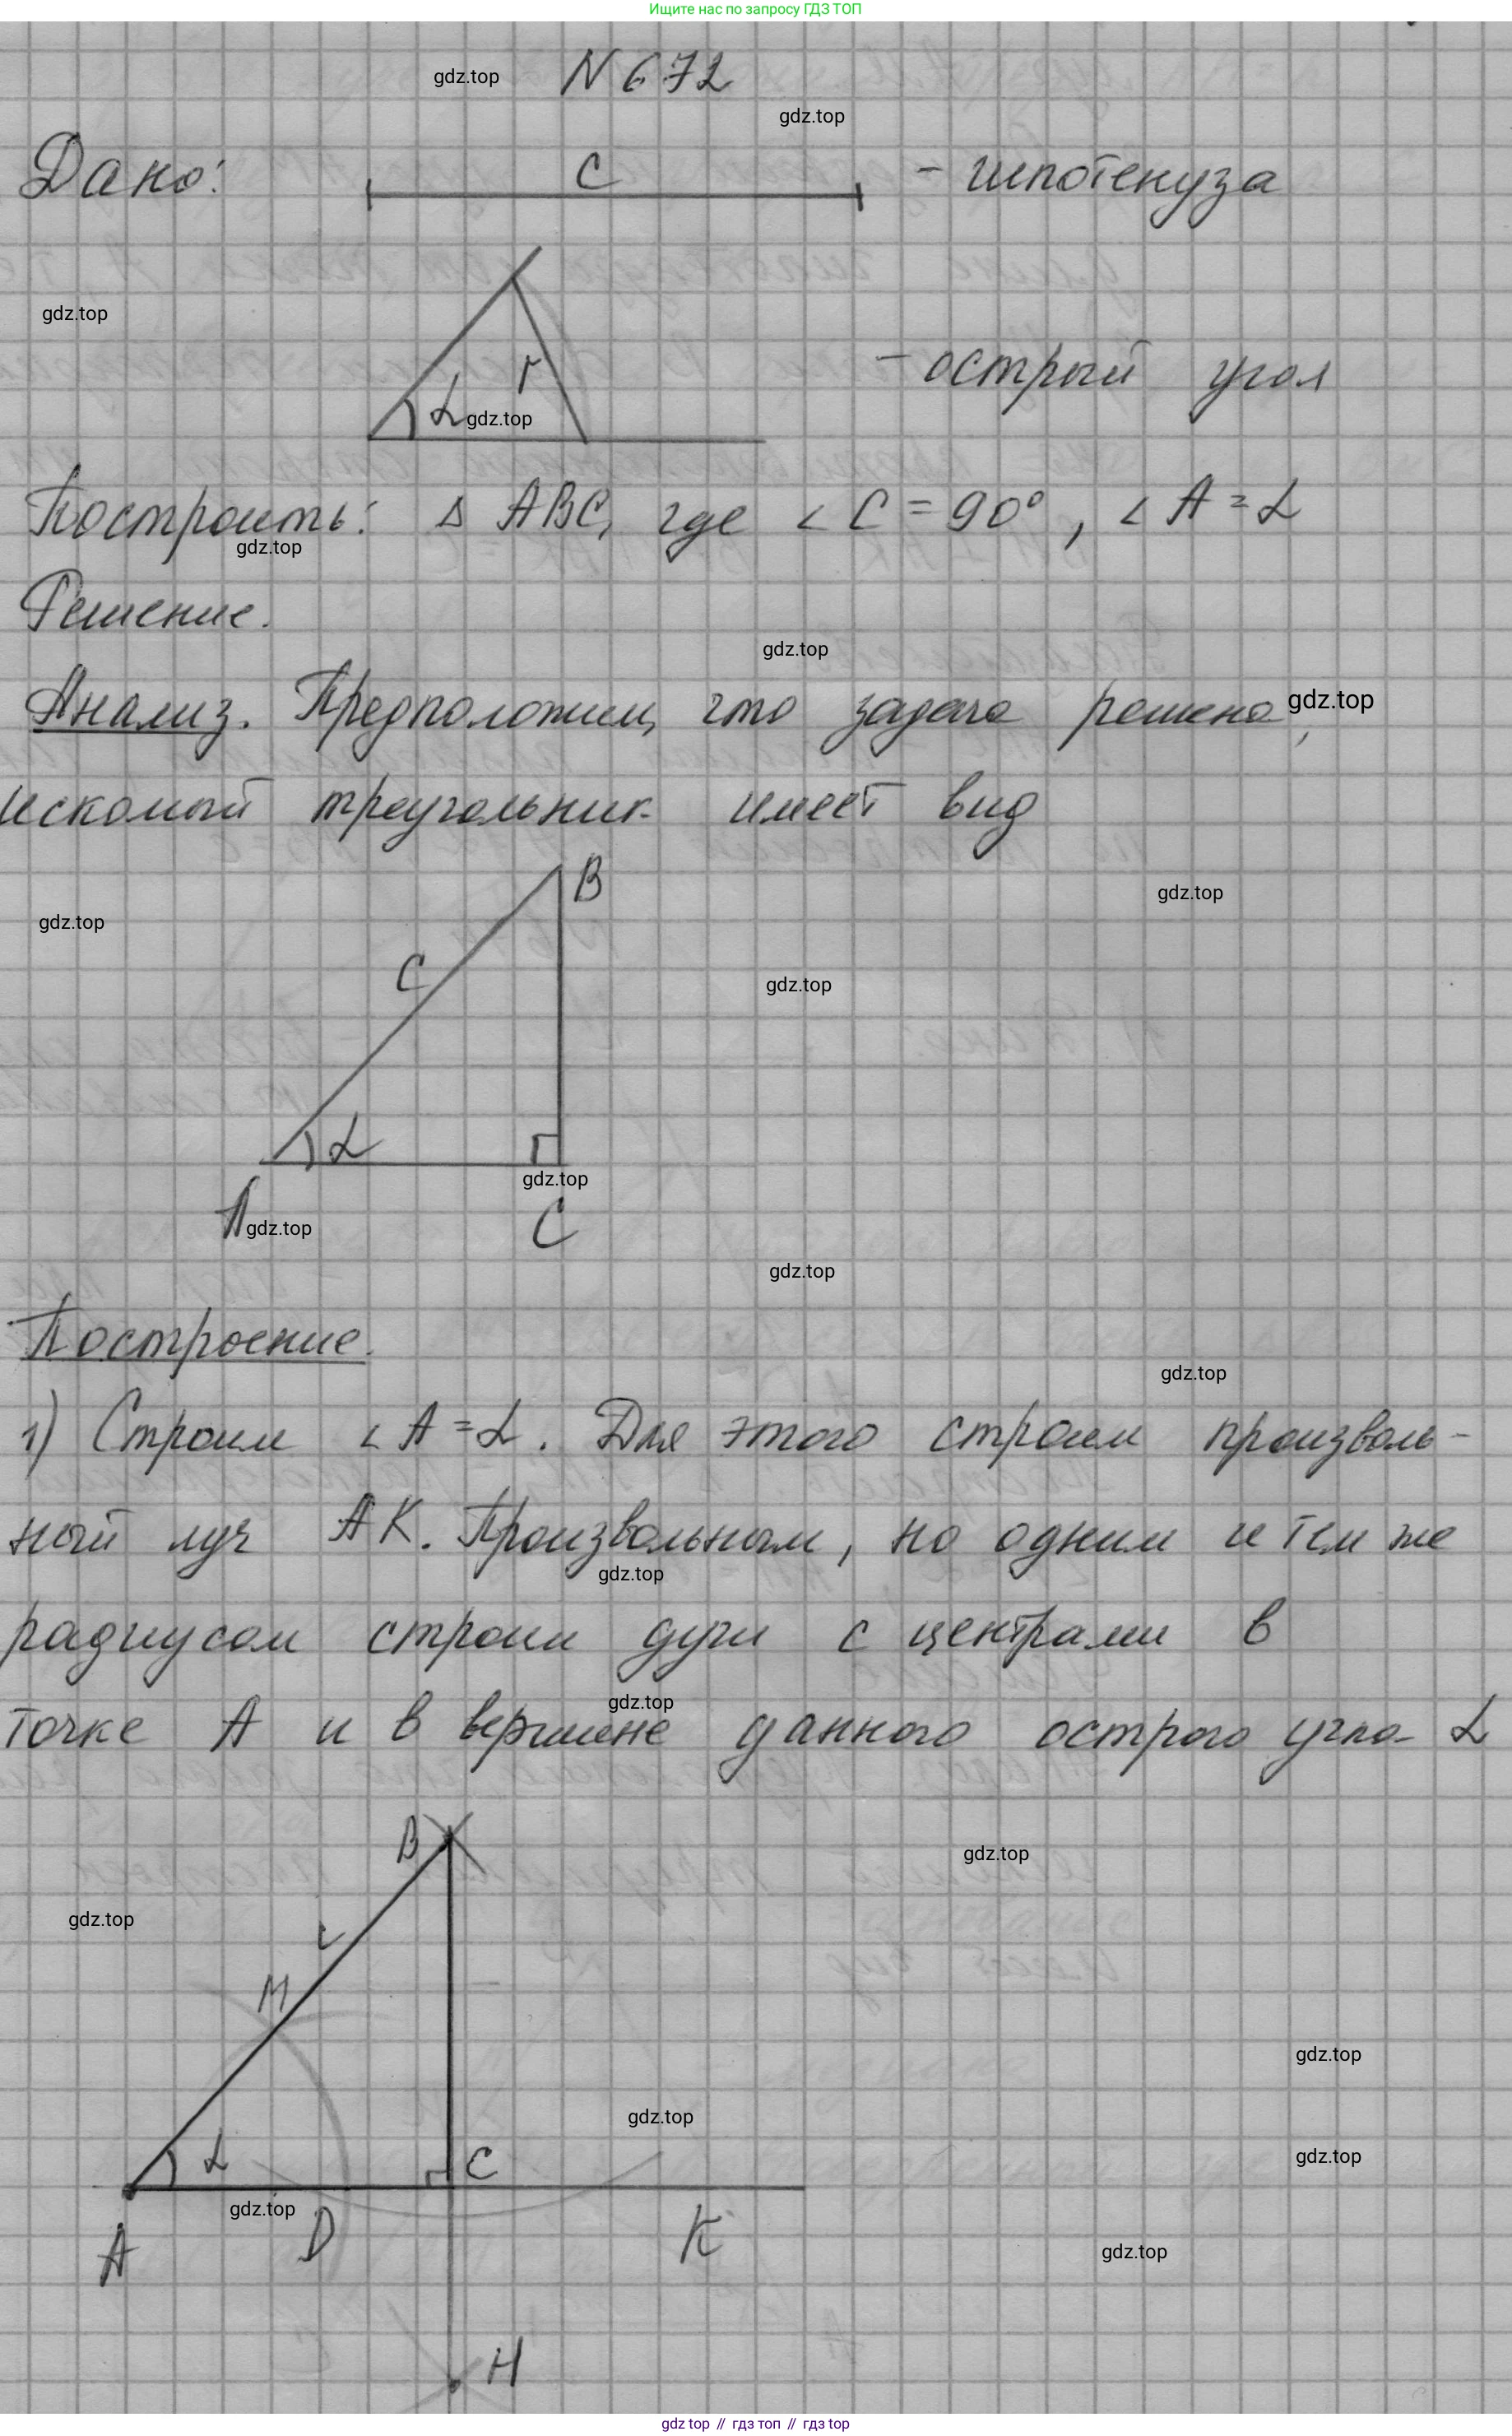 Ищите нас по запросу ГДЗ ТОП
gdz.top
N 672
gdz.top
Дано:
c
- гипотенуза
gdz.top
r
α
gdz.top
- острый угол
Построить: Δ ABC, где ∠ C = 90°, ∠ A = α
gdz.top
Решение.
gdz.top
Анализ. Предположим, что задача решена,
gdz.top
искомый треугольник имеет вид
B
gdz.top
gdz.top
C
gdz.top
α
gdz.top
A
gdz.top
C
gdz.top
Построение.
gdz.top
1) Строим ∠ A = α. Для этого строим произволь-
ный луч AK. Произвольным, но одним и тем же
gdz.top
радиусом строим дуги с центрами в
gdz.top
точке A и в вершине данного острого угла α
B
gdz.top
gdz.top
M
gdz.top
gdz.top
α
C
gdz.top
gdz.top
A
D
K
gdz.top
H
gdz top // гдз топ // гдз top